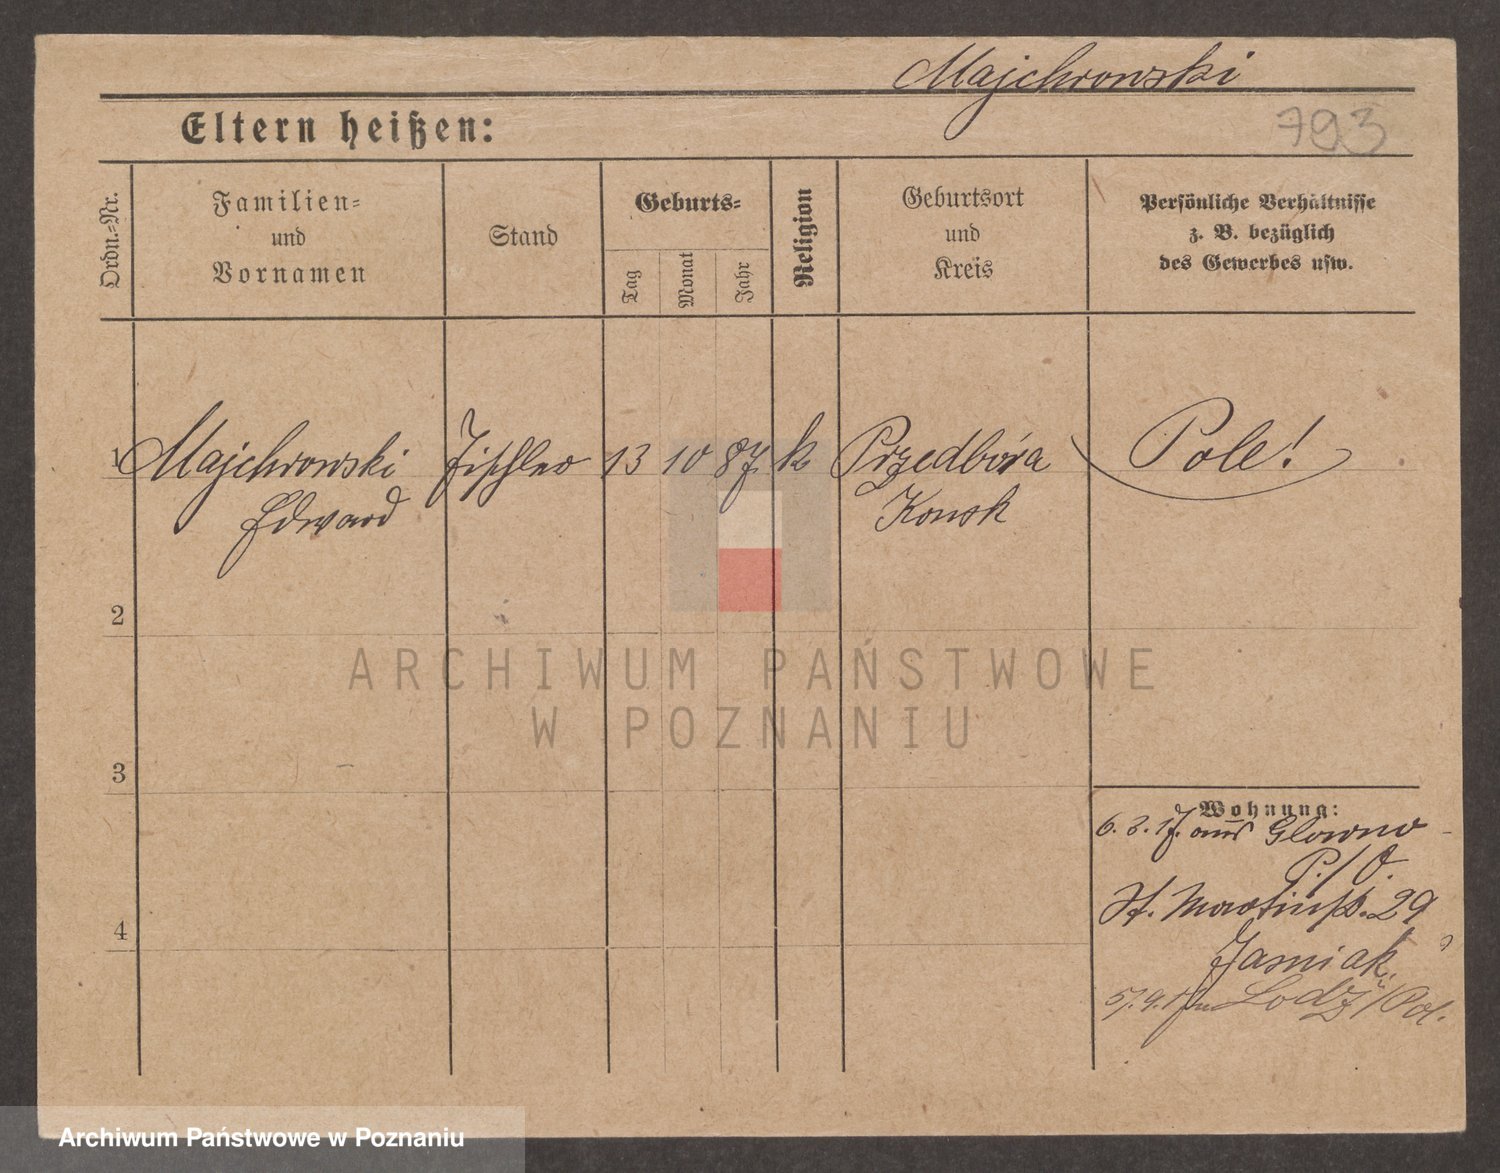 Majchrowski
Eltern heißen:
793
Ordn.-Nr.
Familien-
und
Vornamen
Stand
Geburts-
Tag
Monat
Jahr
Religion
Geburtsort
und
Kreis
Persönliche Verhältnisse
z. B. bezüglich
des Gewerbes usw.
1 Majchrowski Tischler 13 10 87 k Przedbóra Pole!
Edward Konsk
2
ARCHIWUM PAŃSTWOWE
W POZNANIU
3
Wohnung:
6. 3. 17. aus Glowno
P./O.
St. Martinstr. 29
Jasniak
4
5. 9. 17 n Lodz i/Pol.
Archiwum Państwowe w Poznaniu